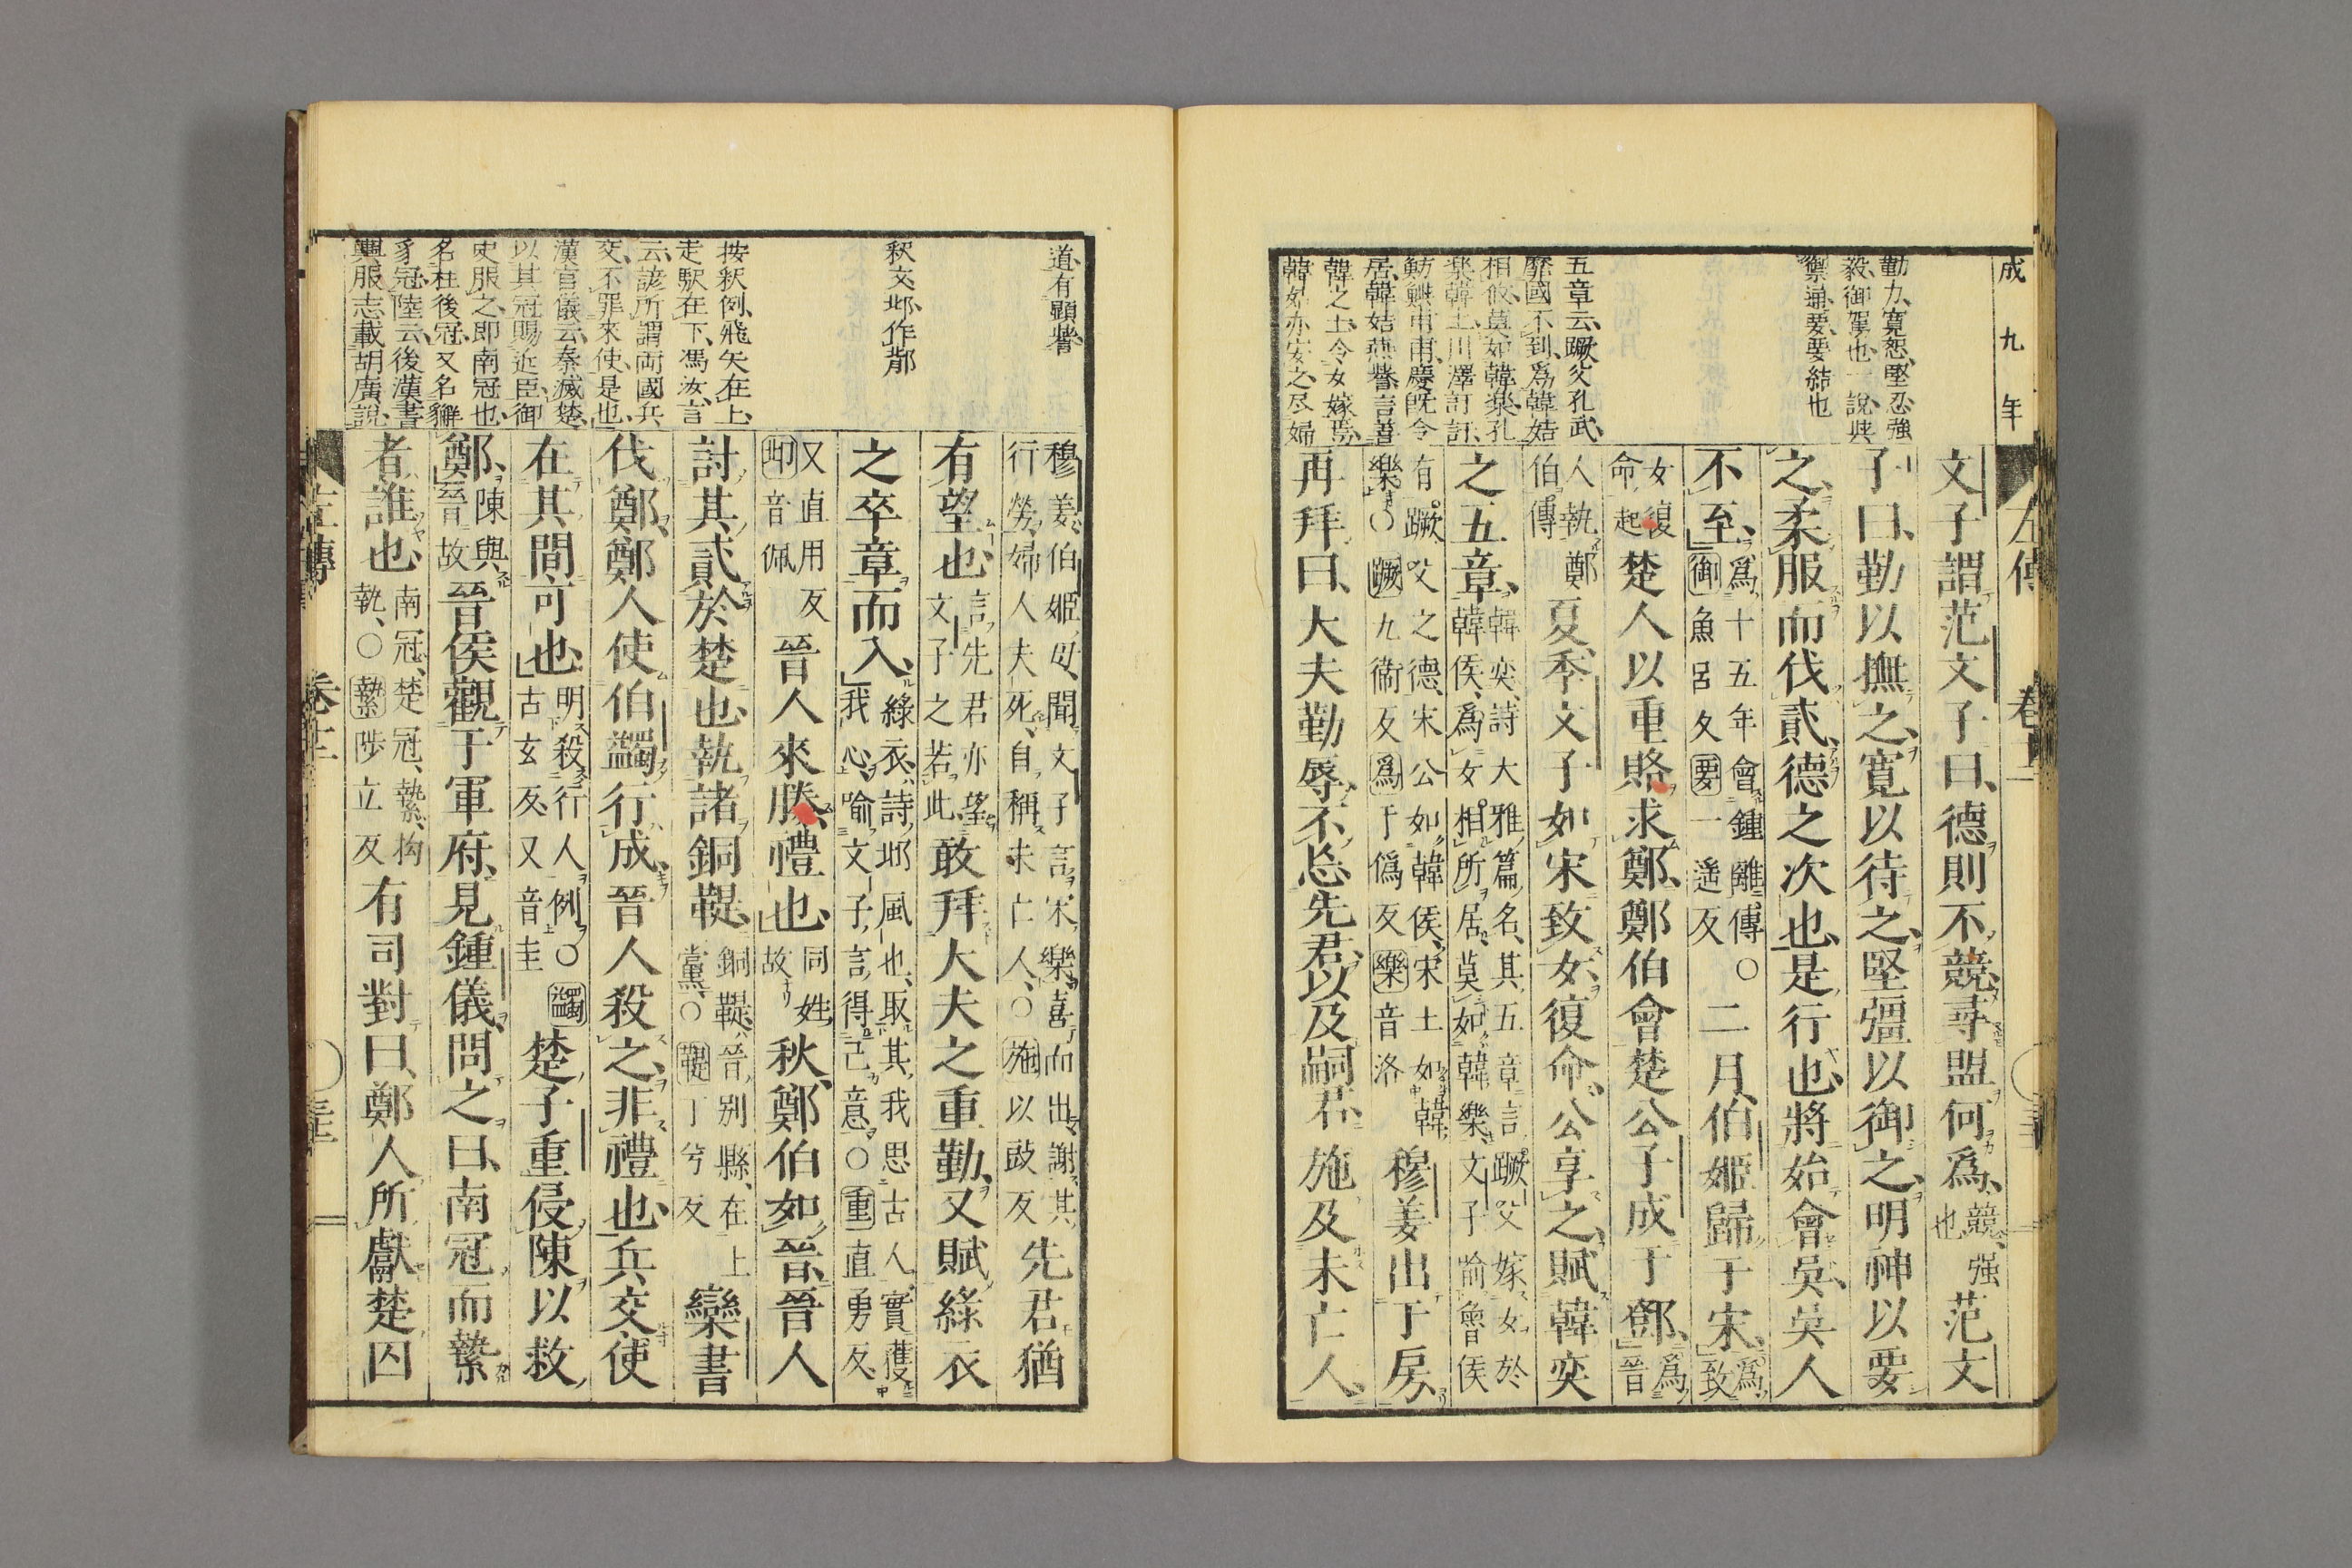 成九年
左傳 卷十二
勤力、寛恕、堅忍強
毅、御駕也、一說與
禦通、要、要結也
五章云、蹶父孔武、
靡國不到、爲韓姞
相攸、莫如韓樂、孔
樂韓土、川澤訏訏、
魴鱮甫甫、慶旣令
居、韓姞燕譽、言善
韓之土、令女嫁焉、
韓姑亦安之、尽婦
文子謂范文子曰、德則不競、尋盟何爲、競、强也 范文
子曰、勤以撫之、寬以待之、堅彊以御之、明神以要
之、柔服而伐貳、德之次也、是行也、將始會吳、吳人
不至、爲十五年會鍾離傳 ○ 御魚呂反 要一遥反 二月、伯姬歸于宋、爲致
女復命起 楚人以重賂求鄭、鄭伯會楚公子成于鄧、爲晉
人執鄭伯傳 夏、季文子如宋致女、復命、公享之、賦韓奕
之五章、韓奕、詩大雅篇名、其五章言、蹶父嫁女於韓侯、爲女相所居、莫如韓樂、文子喻魯侯
有蹶父之德、宋公如韓侯、宋土如韓樂 ○ 蹶九衞反 爲于僞反 樂音洛 穆姜出于房、
再拜曰、大夫勤辱、不忘先君、以及嗣君、施及未亡人、
道、有顯譽
釈文、邶、作鄁
按釈例、飛矢在上、
走駅在下、馮汝言
云、諺所謂両國兵
交、不罪來使、是也、
漢官儀云、秦滅楚、
以其冠賜近臣、御
史服之、即南冠也、
名柱後冠、又名獬
豸冠、陸云、後漢書
輿服志、載胡廣說、
穆姜、伯姬母、聞文子言宋樂、喜而出謝其行勞、婦人夫死、自稱未亡人、○ 施以豉反 先君猶
有望也、言先君亦望文子之若此、敢拜大夫之重勤、又賦綠衣
之卒章而入、綠衣、詩邶風也、取其我思古人、實獲我心、喻文子言得己意、○ 重直勇反、
又直用反 邶音佩 晉人來媵、禮也、同姓故 秋、鄭伯如晉、晉人
討其貳於楚也、執諸銅鞮、銅鞮、晉別縣、在上黨、○ 鞮丁兮反 欒書
伐鄭、鄭人使伯蠲行成、晉人殺之、非禮也、兵交、使
在其間可也、明殺行人例、○ 蠲古玄反、又音圭 楚子重侵陳以救
鄭、陳與晉故 晉侯觀于軍府、見鍾儀、問之曰、南冠而縶
者、誰也、南冠、楚冠、縶、拘執、○ 縶陟立反 有司對曰、鄭人所獻楚囚
左傳